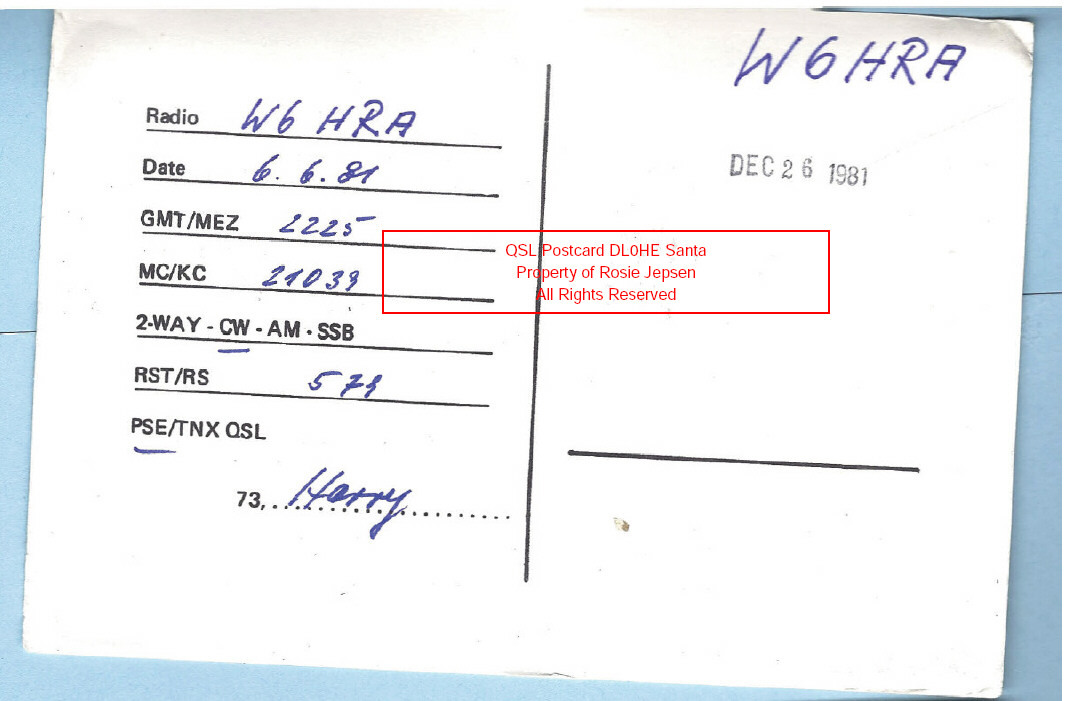 W6HRA
Radio W6 HRA
Date 6.6.81
GMT/MEZ 2225
MC/KC 21039
2-WAY - CW - AM - SSB
RST/RS 579
PSE/TNX QSL
73, Harry
DEC 26 1981
QSL Postcard DL0HE Santa
Property of Rosie Jepsen
All Rights Reserved